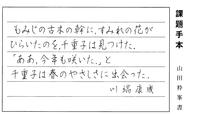 課題手本
山田梓峯書
もみじの古木の幹に、すみれの花が
ひらいたのを、千重子は見つけた。
「ああ、今年も咲いた。」と
千重子は春のやさしさに出会った。
川端康成